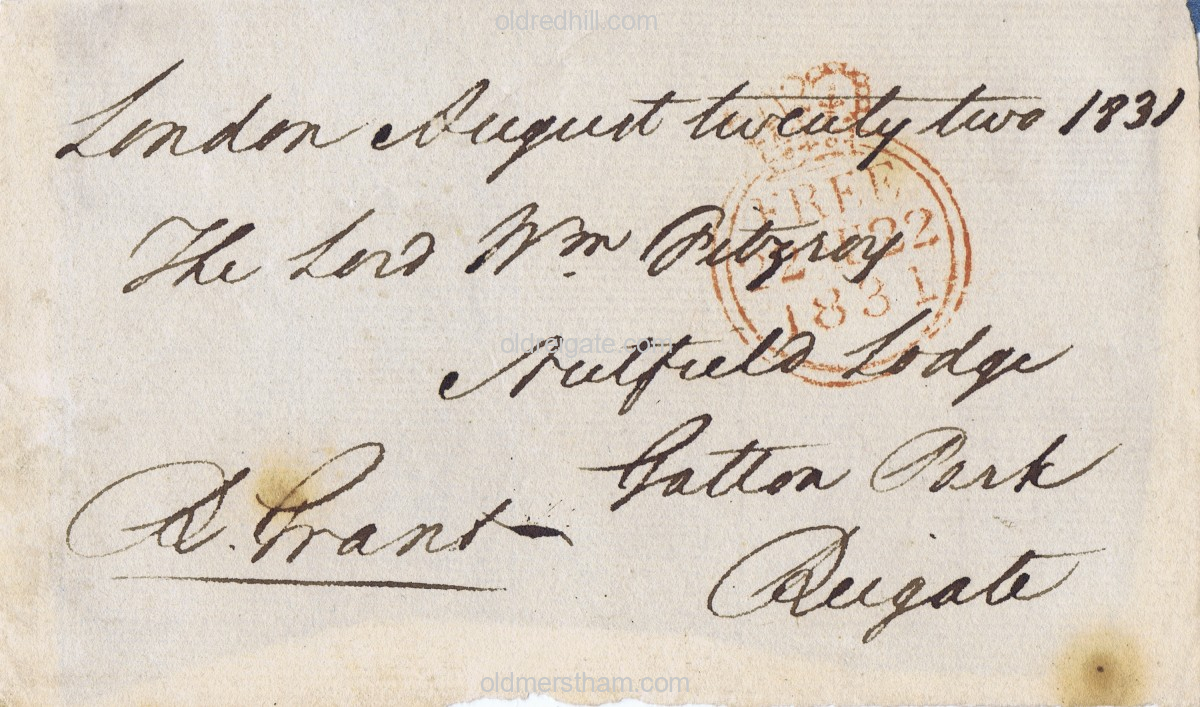 oldredhill.com
London August twenty two 1831
FREE
22
1831
The Lord Wm Fitzroy
oldreigate.com
Nutfield Lodge
Gatton Park
R. Grant
Reigate
oldmerstham.com